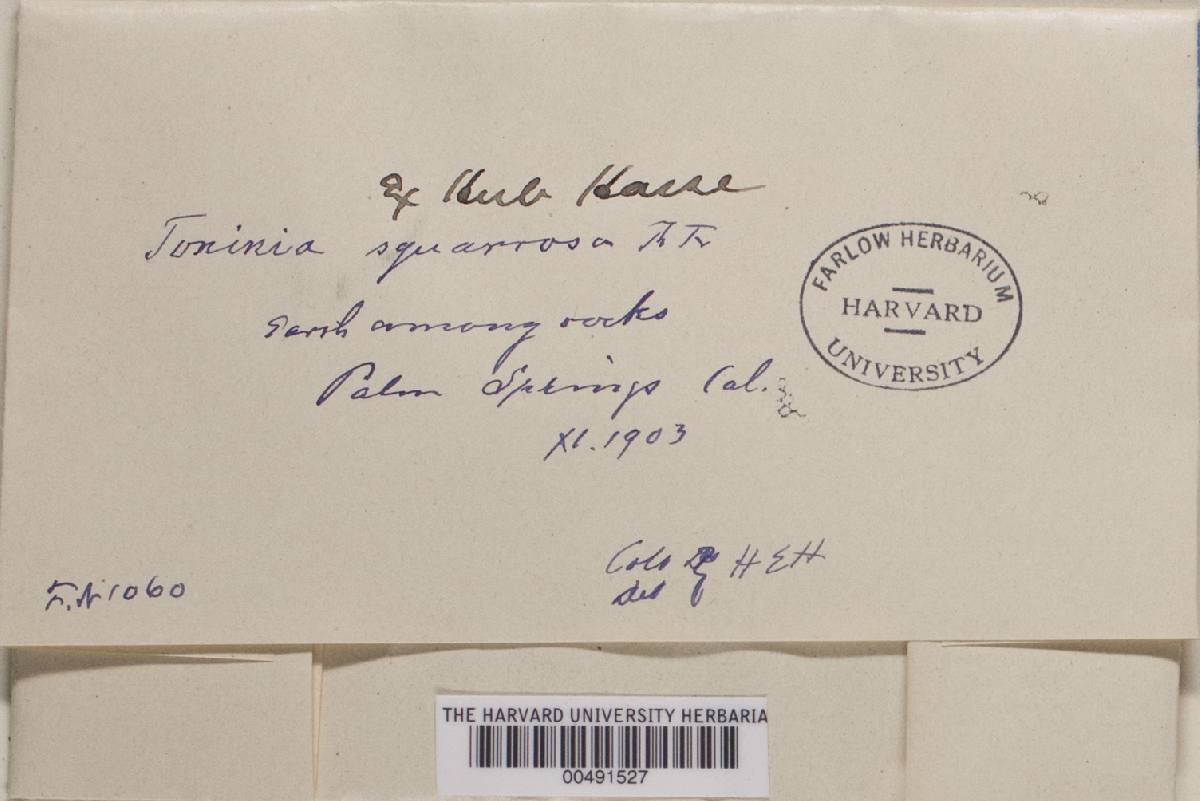 Ex Herb Hasse
Toninia squarrosa Th Fr
Earth among rocks
Palm Springs Cal.
XI. 1903
FARLOW HERBARIUM
HARVARD
UNIVERSITY
Coll & H E H
Det
F.N 1060
THE HARVARD UNIVERSITY HERBARIA
00491527